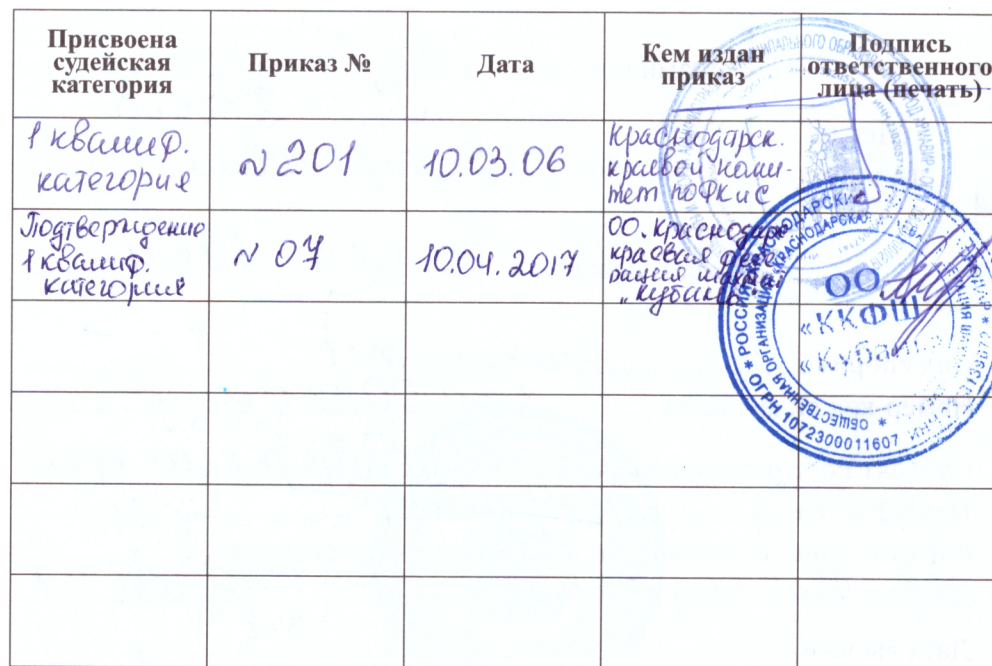 Присвоена
судейская
категория
Приказ №
Дата
Кем издан
приказ
Подпись
ответственного
лица (печать)
1 квалиф.
категория
№ 201
10.03.06
Краснодарск.
краевой коми-
тет по ФКиС
Подтверждение
1 квалиф.
категории
№ 07
10.04.2017
ОО. Краснодар
краевая феде
рация шахмат
"Кубань"
ОО
«ККФШ
«Кубань»
* РОССИЯ * КРАСНОДАРСКИЙ
ОБЩЕСТВЕННАЯ ОРГАНИЗАЦИЯ «КРАСНОДАРСКАЯ
* ОГРН 1072300011607 ИНН